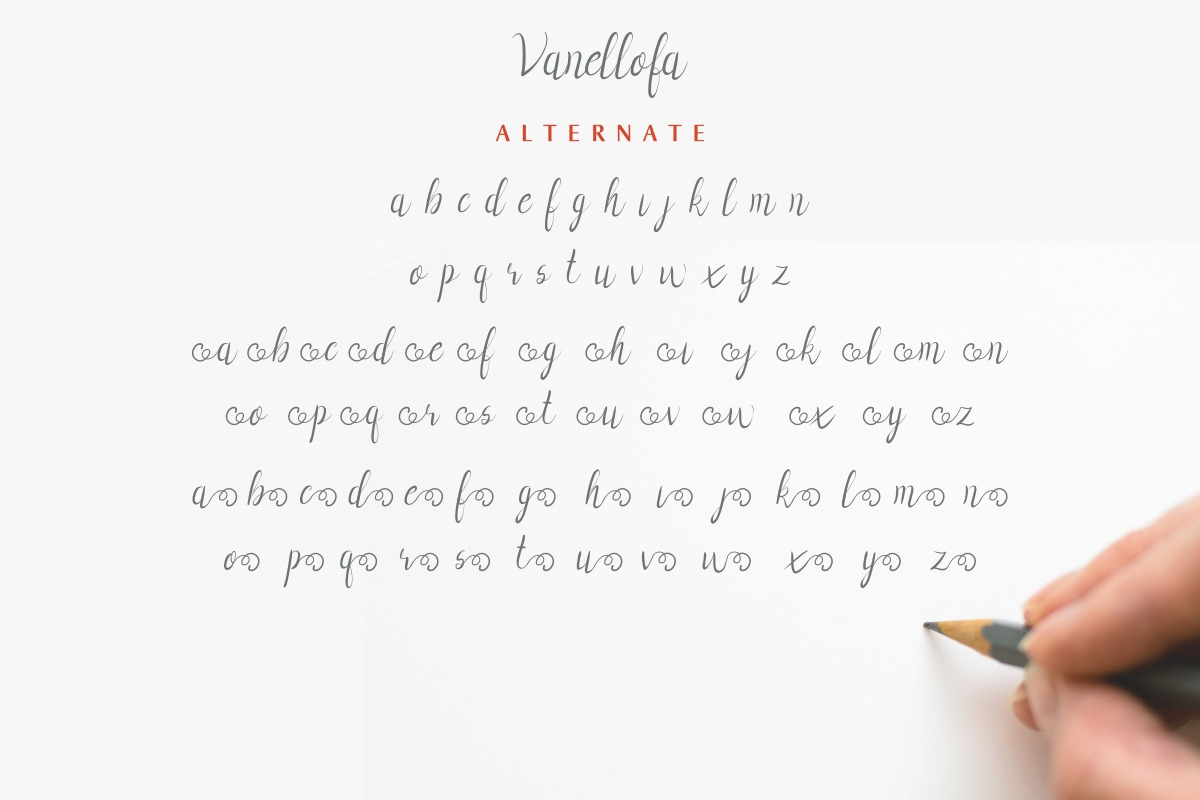 Vanellofa
ALTERNATE
a b c d e f g h i j k l m n
o p q r s t u v w x y z
a b c d e f g h i j k l m n
o p q r s t u v w x y z
a b c d e f g h i j k l m n
o p q r s t u v w x y z